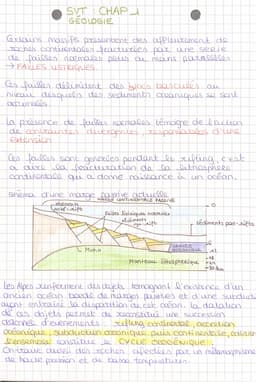 SVT : CHAP 1
GÉOLOGIE
Certains massifs présentent des affleurement de
roches continentales fracturées par une série
de failles normales plus ou moins parallèles
→ FAILLES LISTRIQUES
Ces failles délimitent des blocs basculés au
niveau desquels des sédiments océaniques se sont
accumulés.
La présence de failles normales témoigne de l'action
de contraintes divergentes, responsables d'une
extension
Ces failles sont générées pendant le rifting, c'est
à dire la fracturation de la lithosphère
continentale qui a donné naissance à un océan.
schéma d'une marge passive actuelle
MARGE CONTINENTALE PASSIVE
sédiments
Failles listriques normales
sédiments
sédiments post-rifts
Moho
Manteau lithosphérique
Les Alpes renferment des objets témoignant l'existence d'un
ancien océan bordé de marges passives et d'une subduction
ayant entraîné la disparition de cet océan. la datation
de ces objets permet de reconstituer une succession
d'évènements : rifting continental, accrétion
océanique, subduction océanique puis continentale, collision
l'ensemble constitue le CYCLE OROGÉNIQUE.
On trouve aussi des roches affectées par un métamorphisme
de haute pression et de basse température.